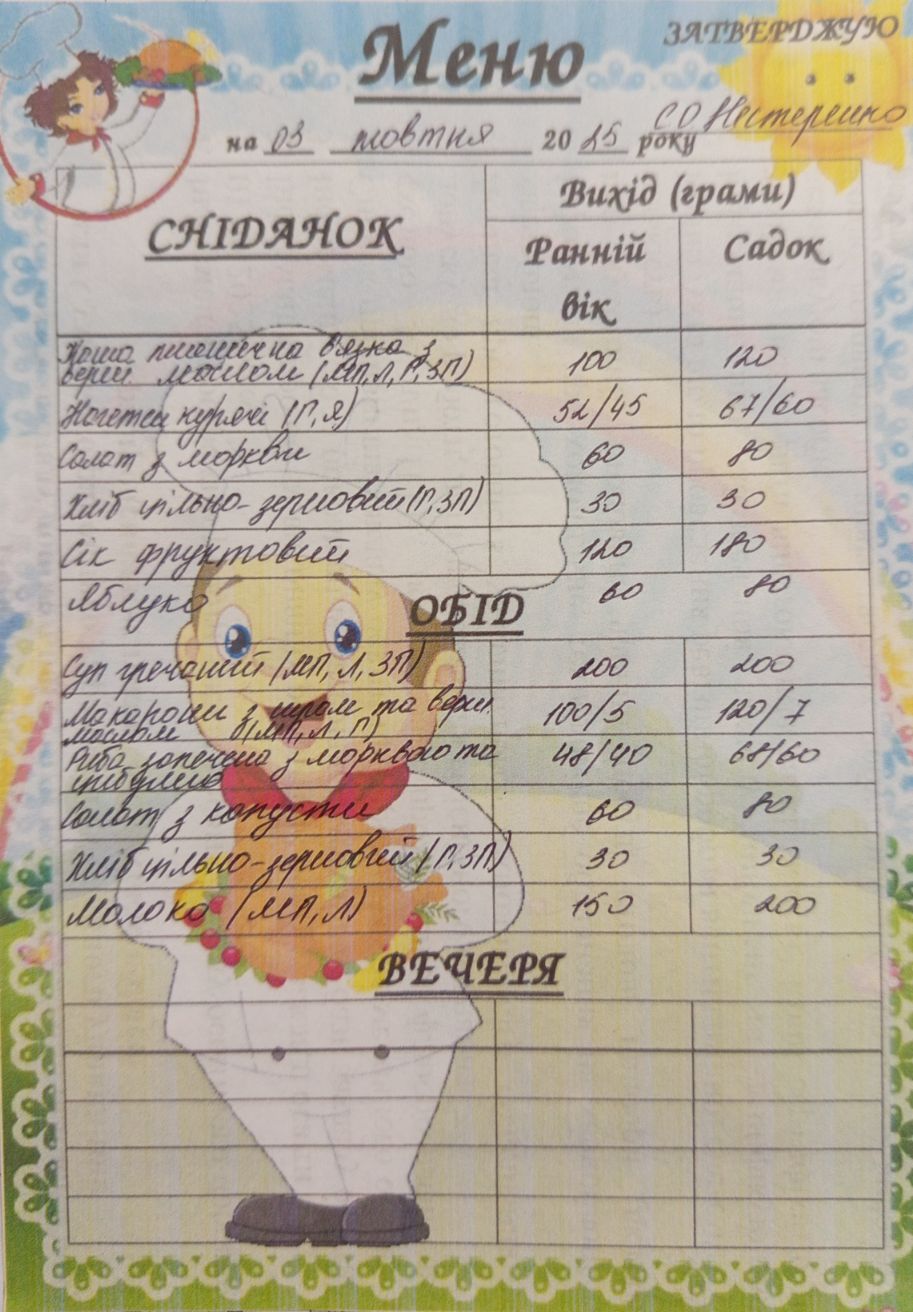 Меню
ЗАТВЕРДЖУЮ
на 03 жовтня 2025 року СО Нестеренко
СНІДАНОК
Вихід (грами)
Ранній вік
Садок
Каша пшенична в'язка з 100 120
верш. маслом (МП, Л, Г, ЗП)
Нагетси курячі (Г, Я) 52/45 67/60
Салат з моркви 60 80
Хліб цільно-зерновий (Г, ЗП) 30 30
Сік фруктовий 120 180
Яблуко 60 80
ОБІД
Суп гречаний (МП, Л, ЗП) 200 200
Макарони з сиром та верш. 100/5 120/7
маслом (МП, Л, Г)
Риба запечена з морквою та 48/40 68/60
цибулею
Салат з капусти 60 80
Хліб цільно-зерновий (Г, ЗП) 30 30
Молоко (МП, Л) 150 200
ВЕЧЕРЯ